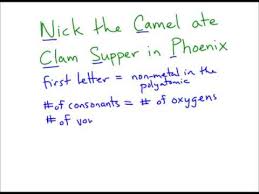 Nick the Camel ate
Clam Supper in Phoenix
first letter = non-metal in the
polyatomic
# of consonants = # of oxygens
# of vow